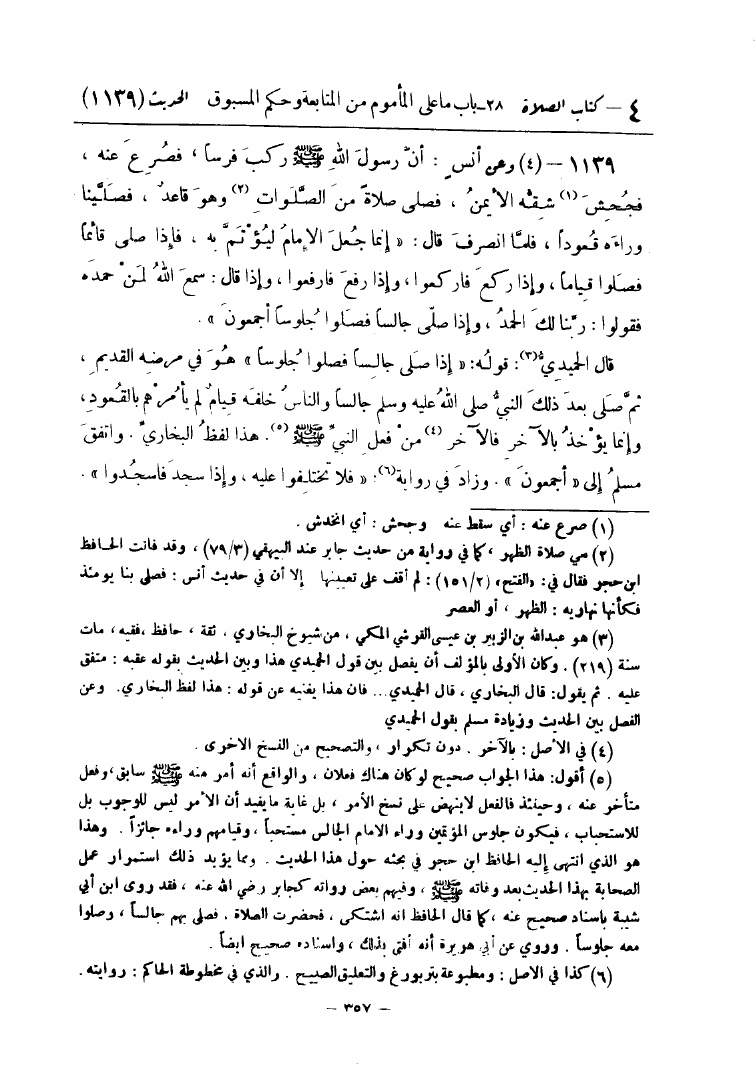 ٤ – كتاب الصلاة ٢٨-باب ما على المأموم من المتابعة وحكم المسبوق الحديث (١١٣٩)
١١٣٩ – (٤) وعن أنسٍ : أنَّ رسولَ اللهِ ﷺ ركبَ فرساً ، فصُرِعَ عنه ،
فجُحِشَ(١) شِقُّه الأيمنُ ، فصلى صلاةً منَ الصَّلَواتِ(٢) وهوَ قاعدٌ ، فصلَّينا
وراءَه قُعوداً ، فلمَّا انصرفَ قال : « إنما جُعلَ الإمامُ ليُؤْتَمَّ به ، فإذا صلى قائماً
فصَلوا قياماً ، وإذا ركعَ فاركعوا ، وإذا رفعَ فارفعوا ، وإذا قال : سمعَ اللهُ لمنْ حمدَه
فقولوا : ربَّنا لكَ الحمدُ ، وإذا صلّى جالساً فصَلوا جُلوساً أجمعونَ » .
قال الحُميديُّ(٣) : قولُه : « إذا صلى جالِساً فصلوا جُلوساً » هُوَ في مرضِه القديم ،
ثمَّ صلى بعدَ ذلكَ النبيُّ صلى اللهُ عليه وسلم جالساً والناسُ خلفَه قِيامٌ لم يأمُرْهم بالقُعودِ ،
وإنما يؤْخَذُ بالآخرِ فالآخرِ (٤) منْ فعلِ النبيِّ ﷺ (٥) . هذا لفظُ البخاريِّ . واتفقَ
مسلمٌ إلى « أجمعونَ » . وزادَ في رواية(٦) : « فلا تختلِفوا عليه ، وإذا سجدَ فاسجُدوا » .
(١) صرع عنه : أي سقط عنه وجحش : أي انخدش .
(٢) هي صلاة الظهر ، كما في رواية من حديث جابر عند البيهقي (٧٩/٣) ، وقد فاتت الحافظ
ابن حجر فقال في : «الفتح» (١٥١/٢) : لم أقف على تعيينها إلا أن في حديث أنس : فصلى بنا يومئذ
فكأنها نهاريه : الظهر ، أو العصر
(٣) هو عبدالله بن الزبير بن عيسى القرشي المكي ، من شيوخ البخاري . ثقة ، حافظ ، فقيه ، مات
سنة (٢١٩) . وكان الأولى بالمؤلف أن يفصل بين قول الحميدي هذا وبين الحديث بقوله عقبه : متفق
عليه . ثم يقول : قال البخاري ، قال الحميدي ... فان هذا يغنيه عن قوله : هذا لفظ البخاري . وعن
الفصل بين الحديث وزيادة مسلم بقول الحميدي
(٤) في الأصل : بالآخر . دون تكرار ، والتصحيح من النسخ الاخرى .
(٥) أقول: هذا الجواب صحيح لو كان هناك فعلان ، والواقع أنه أمر منه ﷺ سابق ، وفعل
متأخر عنه ، وحينئذ فالفعل لاينهض على نسخ الأمر ، بل غاية ما يفيد أن الأمر ليس للوجوب بل
للاستحباب ، فيكون جلوس المؤتمين وراء الامام الجالس مستحباً ، وقيامهم وراءه جائزاً . وهذا
هو الذي انتهى إليه الحافظ ابن حجر في بحثه حول هذا الحديث . ومما يؤيد ذلك استمرار عمل
الصحابة بهذا الحديث بعد وفاته ﷺ ، وفيهم بعض رواته كجابر رضي الله عنه ، فقد روى ابن أبي
شيبة باسناد صحيح عنه ، كما قال الحافظ انه اشتكى ، فحضرت الصلاة . فصلى بهم جالساً ، وصلوا
معه جلوساً . وروي عن أبي هريرة أنه أفتى بذلك ، واسناده صحيح ايضاً .
(٦) كذا في الاصل : ومطبوعة بتربورغ والتعليق الصبيح . والذي في مخطوطة الحاكم : روايته .
– ٣٥٧ –